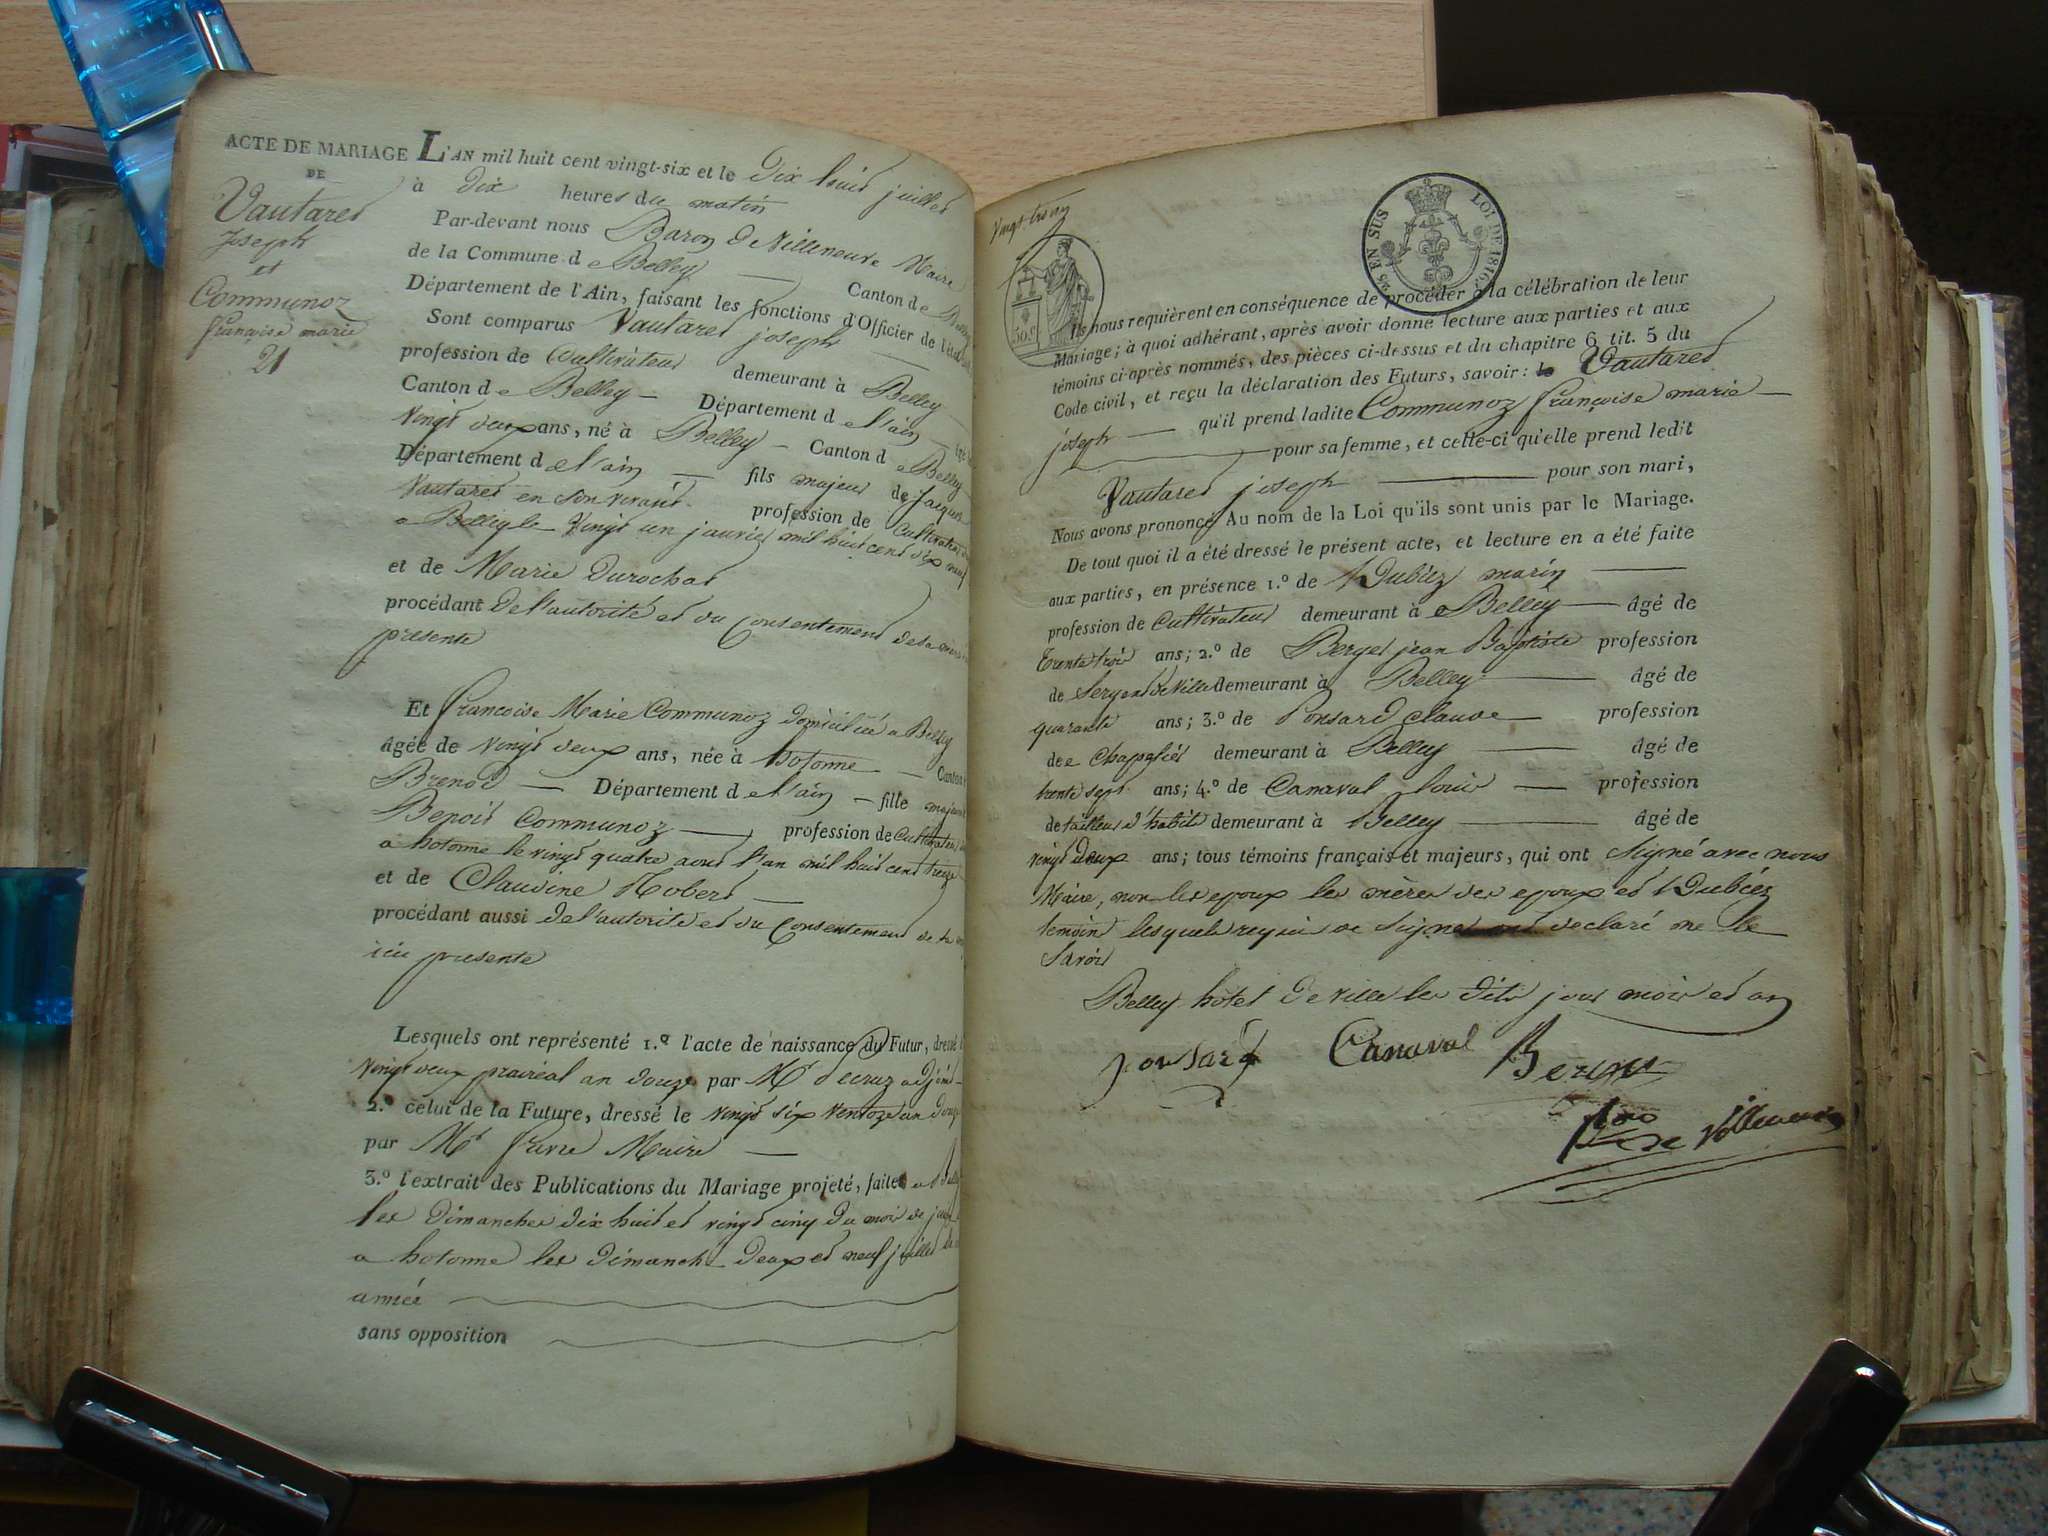 ACTE DE MARIAGE
DE
Vautaret
Joseph
et
Communoz
françoise marie
21
L'AN mil huit cent vingt-six et le dix huit juillet
à dix heures du matin
Par-devant nous Baron de Villeneuve Maire
de la Commune de Belley — Canton de Belley
Département de l'Ain, faisant les fonctions d'Officier de l'état
Sont comparus Vautaret joseph —
profession de Cultivateur demeurant à Belley —
Canton de Belley — Département de l'ain — âgé de
vingt deux ans, né à Belley — Canton de Belley
Département de l'ain — fils majeur de Jacques
Vautaret en son vivant profession de Cultivateur
a Belley le vingt un janvier mil huit cent dix neuf
et de Marie Durochat
procédant de l'autorité et du Consentement de sa mère
presente
Et francoise Marie Communoz domiciliée a Belley
âgée de vingt deux ans, née à hotonne — Canton
Brenod — Département de l'ain — fille majeure
Benoit Communoz — profession de Cultivateur
a hotonne le vingt quatre aout l'an mil huit cent treize
et de Claudine Robert —
procédant aussi de l'autorité et du Consentement de sa
ici presente
Lesquels ont représenté 1.º l'acte de naissance du Futur, dressé
vingt deux prairéal an douze par Mr decruz adjoint
2.º celui de la Future, dressé le vingt six ventoze an douze
par Mr favre Maire —
3.º l'extrait des Publications du Mariage projeté, faites a Belley
les dimanches dix huit et vingt cinq du mois de juin
a hotonne les dimanche deux et neuf juillet
année
sans opposition
vingt trois
50 c.
25 EN SUS
LOI DE 1816
Ils nous requièrent en conséquence de procéder à la célébration de leur
Mariage; à quoi adhérant, après avoir donné lecture aux parties et aux
témoins ci-après nommés, des pièces ci-dessus et du chapitre 6, tit. 5 du
Code civil, et reçu la déclaration des Futurs, savoir: le Vautaret
joseph — qu'il prend ladite Communoz françoise marie —
— pour sa femme, et celle-ci qu'elle prend ledit
Vautaret joseph — pour son mari,
Nous avons prononcé Au nom de la Loi qu'ils sont unis par le Mariage.
De tout quoi il a été dressé le présent acte, et lecture en a été faite
aux parties, en présence 1.º de Dubiez marin —
profession de Cultivateur demeurant à Belley — âgé de
trente trois ans; 2.º de Berget jean Baptiste profession
de Sergent de Ville demeurant à Belley — âgé de
quarante ans; 3.º de Ponsard claude — profession
de Chapelier demeurant à Belley — âgé de
trente sept ans; 4.º de Canaval louis — profession
de tailleur d'habits demeurant à Belley — âgé de
vingt deux ans; tous témoins français et majeurs, qui ont signé avec nous
Maire, non les epoux les mères des epoux et Dubiez
temoin lesquels requis de signer ont declaré ne le
savoir
Belley hôtel de ville les dits jour mois et an
ponsard Canaval
Bon de Villeneuve